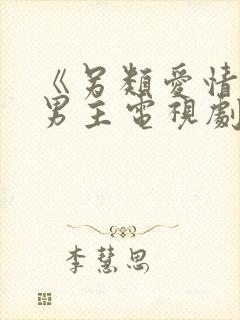 《另類愛情
男主電視劇
李慧思